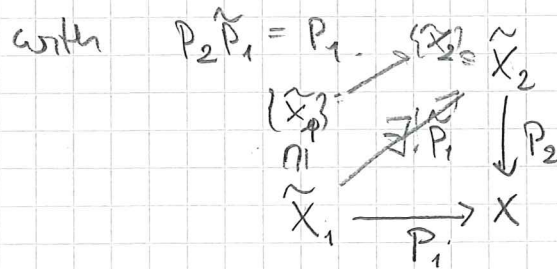 with P₂P̃₁ = P₁.
{x̃₂} X̃₂
{x̃₁}
∃! P̃₁ P₂
X̃₁ X
P₁